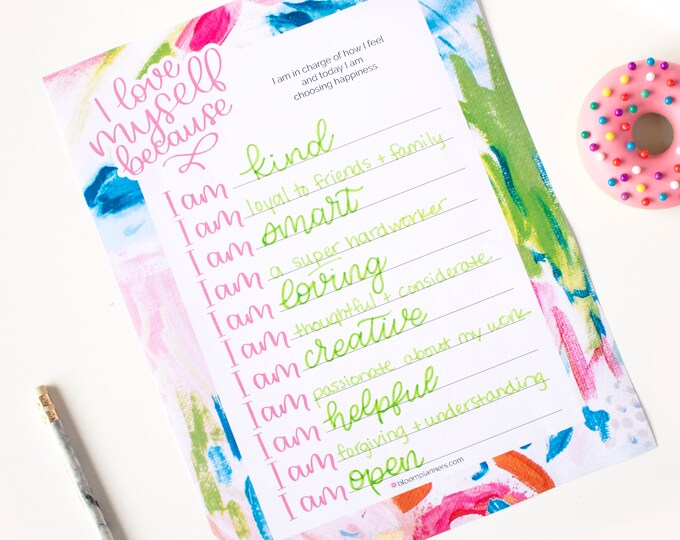 I love
myself
because
I am in charge of how I feel
and today I am
choosing happiness.
I am kind
I am loyal to friends + family
I am smart
I am a super hardworker
I am loving
I am thoughtful + considerate
I am creative
I am passionate about my work
I am helpful
I am forgiving + understanding
I am open
bloomplanners.com